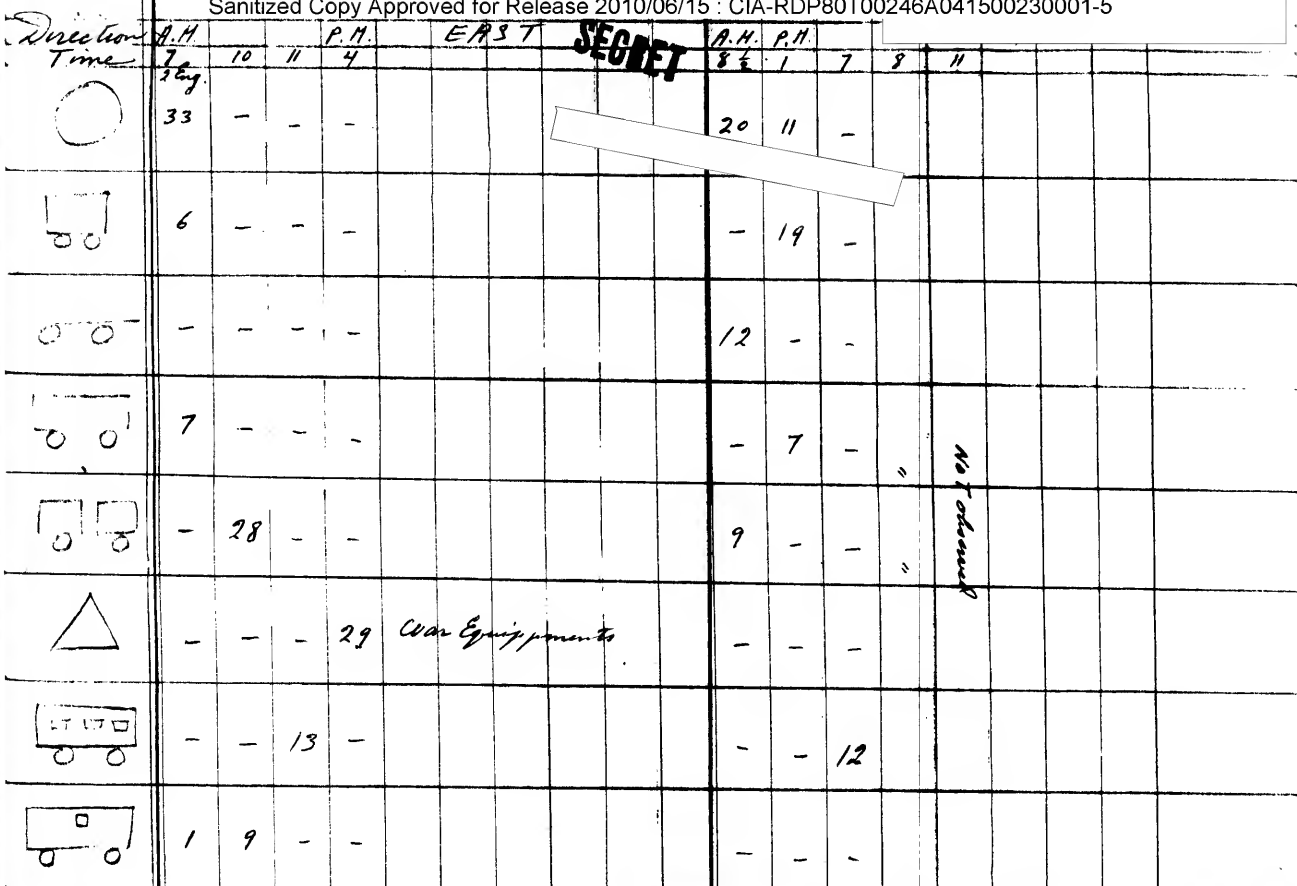 Sanitized Copy Approved for Release 2010/06/15 : CIA-RDP80T00246A041500230001-5
Direction A.M. P.M. EAST SECRET A.M. P.M.
Time 7 10 11 4 8 1/2 1 7 8 11
2 Eng.
33 - - - 20 11 -
6 - - - - 19 -
- - - - 12 - -
7 - - - - 7 - "
- 28 - - 9 - - "
Not observed
- - - 29 War Equippments - - -
- - 13 - - - 12
1 9 - - - - -